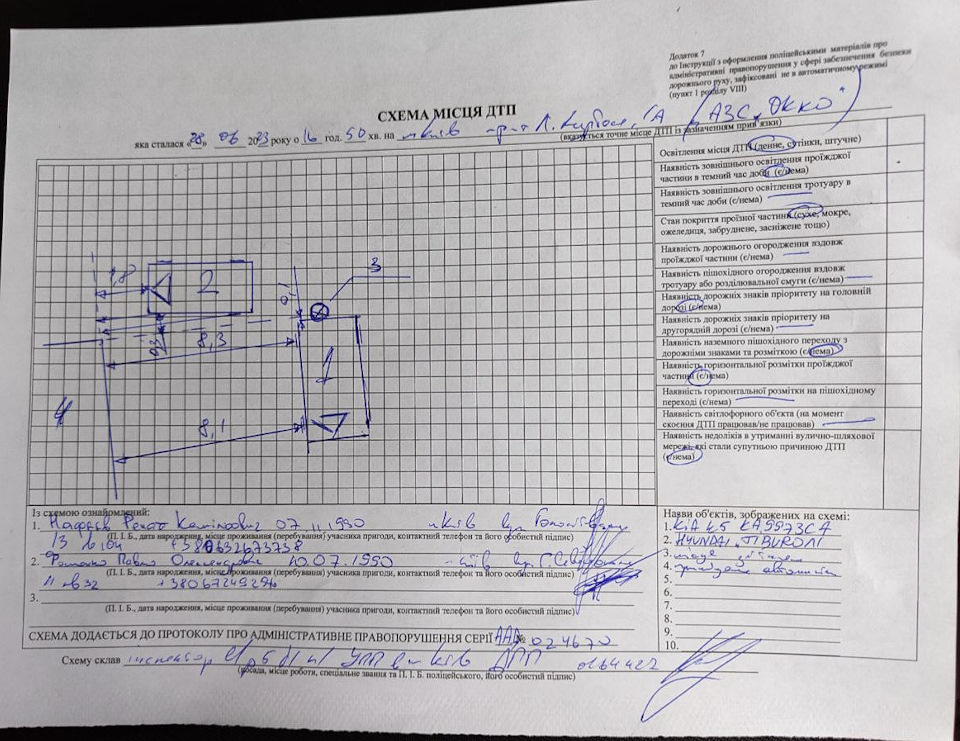 Додаток 7
до Інструкції з оформлення поліцейськими матеріалів про
адміністративні правопорушення у сфері забезпечення безпеки
дорожнього руху, зафіксовані не в автоматичному режимі
(пункт 1 розділу VIII)
СХЕМА МІСЦЯ ДТП
яка сталася «28» 06 2023 року о 16 год. 50 хв. на м. Київ пр-т Л. Курбаса, 1А АЗС „ОККО"
(вказується точне місце ДТП із зазначенням прив'язки)
Освітлення місця ДТП (денне, сутінки, штучне)
Наявність зовнішнього освітлення проїжджої
частини в темний час доби (є/нема)
Наявність зовнішнього освітлення тротуару в
темний час доби (є/нема)
Стан покриття проїзної частини (сухе, мокре,
ожеледиця, забруднене, засніжене тощо)
Наявність дорожнього огородження вздовж
проїжджої частини (є/нема)
Наявність пішохідного огородження вздовж
тротуару або розділювальної смуги (є/нема)
Наявність дорожніх знаків пріоритету на головній
дорозі (є/нема)
Наявність дорожніх знаків пріоритету на
другорядній дорозі (є/нема)
Наявність наземного пішохідного переходу з
дорожніми знаками та розміткою (є/нема)
Наявність горизонтальної розмітки проїжджої
частини (є/нема)
Наявність горизонтальної розмітки на пішохідному
переході (є/нема)
Наявність світлофорного об'єкта (на момент
скоєння ДТП працював/не працював)
Наявність недоліків в утриманні вулично-шляхової
мережі, які стали супутньою причиною ДТП
(є/нема)
1,8
2
0,1
3
8,3
1
4
8,1
Із схемою ознайомлений:
1. Камілович 07.11.1990 м. Київ вул.
(П. І. Б., дата народження, місце проживання (перебування) учасника пригоди, контактний телефон та його особистий підпис)
2. Павло 10.07.1990 Київ вул.
(П. І. Б., дата народження, місце проживання (перебування) учасника пригоди, контактний телефон та його особистий підпис)
3.
(П. І. Б., дата народження, місце проживання (перебування) учасника пригоди, контактний телефон та його особистий підпис)
Назви об'єктів, зображених на схемі:
1. KIA K5 KA9973CA
2. HYUNDAI TIBURON
3. місце зіткнення
4.
5.
6.
7.
8.
9.
10.
СХЕМА ДОДАЄТЬСЯ ДО ПРОТОКОЛУ ПРО АДМІНІСТРАТИВНЕ ПРАВОПОРУШЕННЯ СЕРІЇ ААД № 024670
Схему склав інспектор УПП в м. Київ ДПП 0164422
(посада, місце роботи, спеціальне звання та П. І. Б. поліцейського, його особистий підпис)